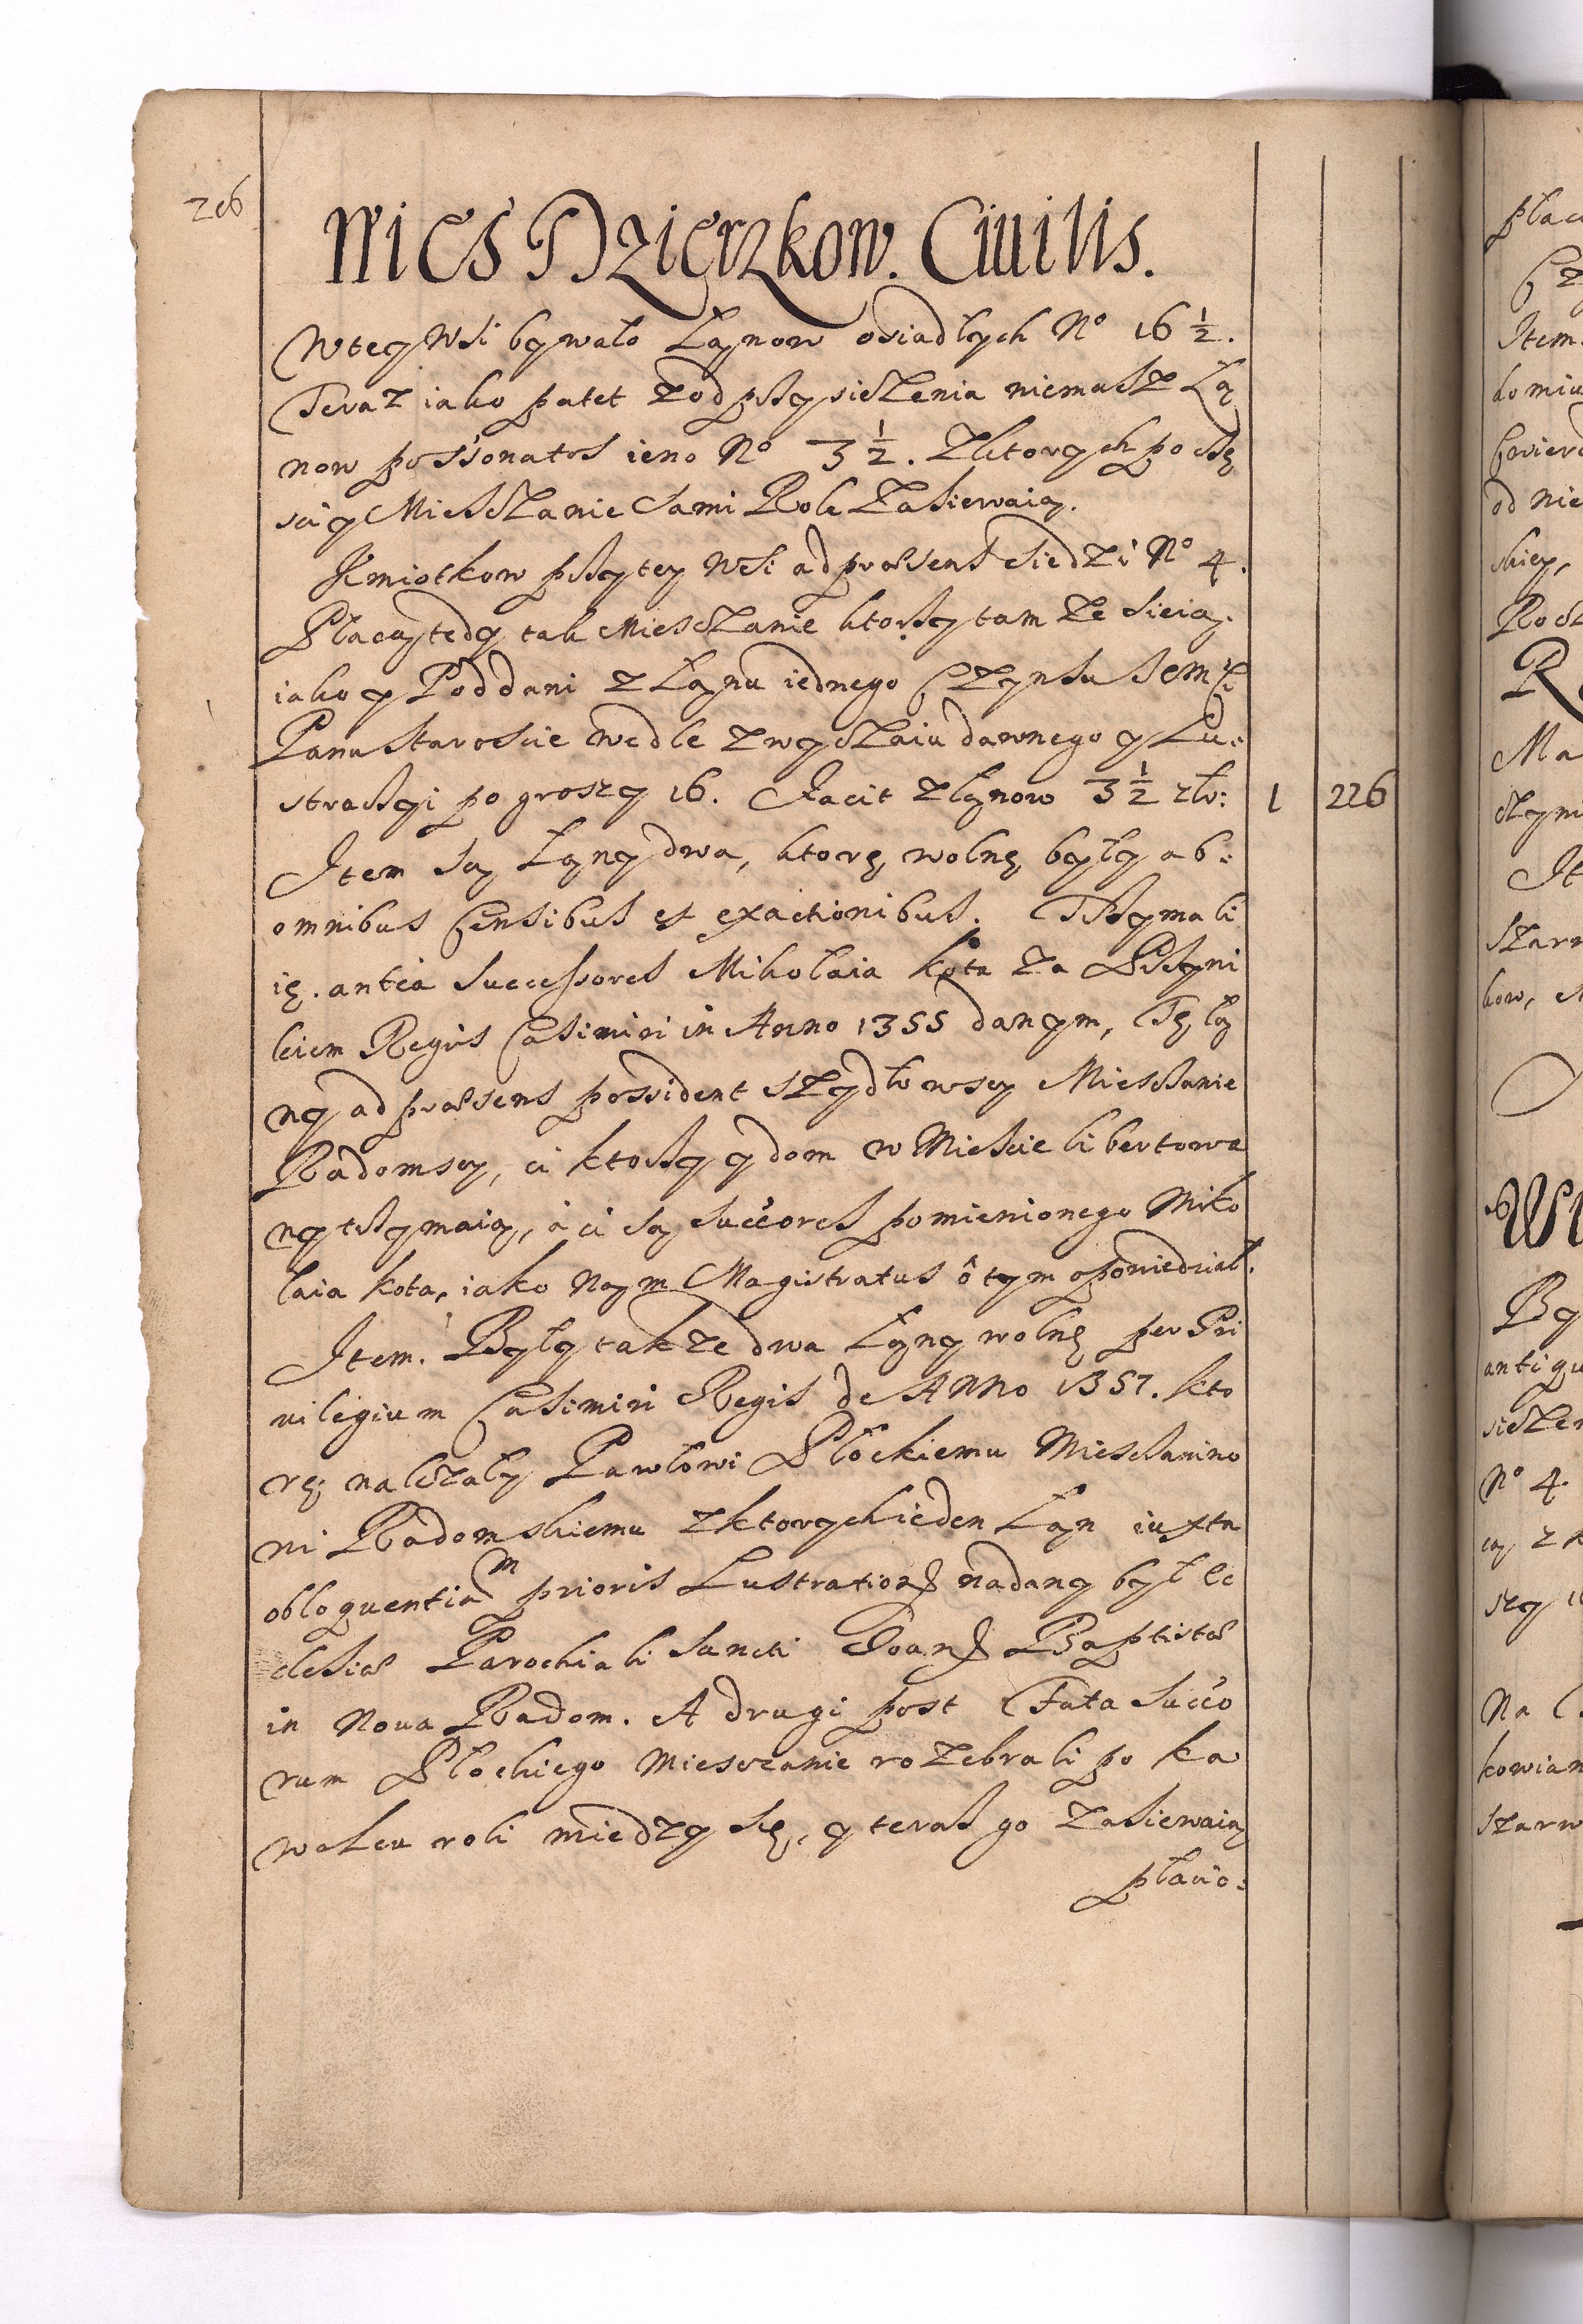 206
Wies Dzierzkow. Ciuilis.
W tey Wsi bywało Łanow osiadłych No 16 ½.
Teraz iako patet z od przysiezenia niemasz Ła
now possonatos ieno No 3 ½. z ktorych po czę
sci y Miesczanie sami Role zasiewaią.
Kmiotkow przy tey Wsi ad præsens siedzi No 4.
Płacą tedy tak Miesczanie ktorzy tam ze sieią.
iako y Poddani z Łanu iednego Czynszu Jemci
Panu staroscie wedle zwyczaiu dawnego y Lu:
stracyi po groszy 16. Facit z łanow 3 ½ zło: 1 226
Item są Łany dwa, ktorę wolnę były ab:
omnibus Censibus et exactionibus. Trzymali
ię. anteà Successores Mikołaia kota za Przywi
leiem Regis Casimiri in Anno 1355 danym, Tę ła
ny ad præsens possident Szydłowscy Miesczanie
Radomscy, ci ktorzy y dom w Miescie libertowa
ny trzymaią, à ci są Succores pomienionego Miko
łaia kota, iako Nam Magistratus ô tym opowiedział.
Item. Były takze dwa Łany wolnę per Pri
uilegium Casimiri Regis de Anno 1357. kto
rę nalezały Pawłowi Płockiemu Miesczanino
wi Radomskiemu z ktorych ieden Łan iuxta
obloquentiam prioris Lustrationis nadany był Ec
clesiæ Parochiali Sancti Joannis Baptistæ
in Noua Radom. A drugi post Fata Succo
rum Płockiego Miesczanie rozebrali po ka
wałcu roli miedzy się, y teras go zasiewaią
płacic: